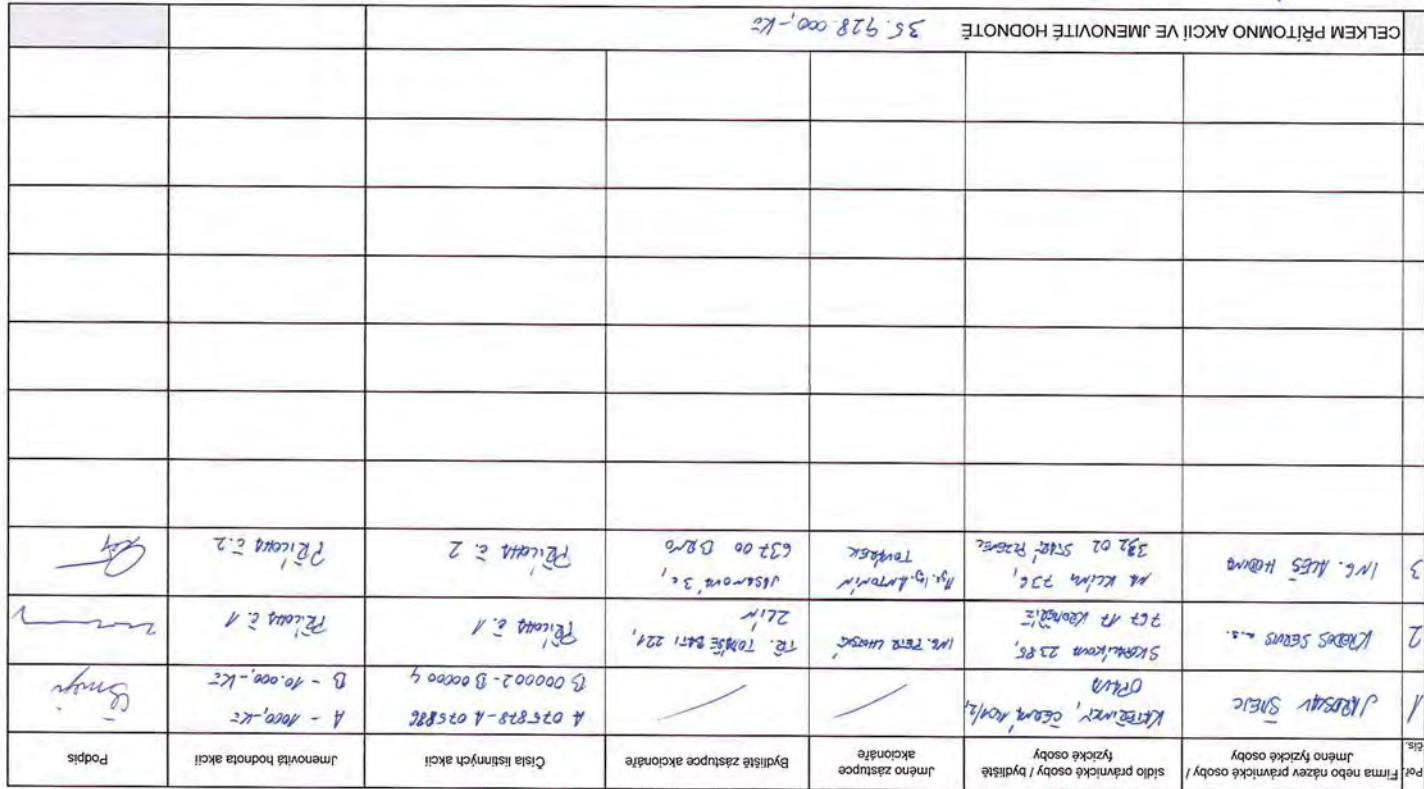 Poř. čís.
Firma nebo název právnické osoby /
Jméno fyzické osoby
sídlo právnické osoby / bydliště
fyzické osoby
Jméno zástupce
akcionáře
Bydliště zástupce akcionáře
Čísla listinných akcií
Jmenovitá hodnota akcií
Podpis
1
JAROSLAV ŠNEJC
KATEŘINKY,
OPAVA
A 075878-A 075886
B 000002-B 000004
A - 1000,-Kč
B - 10.000,-Kč
2
KREDOS SERVIS a.s.
2385,
767 17 KROMĚŘÍŽ
ING. PETR
TŘ. TOMÁŠE BATI 221,
ZLÍN
PŘÍLOHA č. 1
PŘÍLOHA č. 1
3
ING. ALEŠ HODINA
NA KLÍNU 736,
332 02 STARÝ PLZENEC
ANTONÍN
TOVÁREK
JASANOVÁ 3c,
637 00 BRNO
PŘÍLOHA č. 2
PŘÍLOHA č. 2
CELKEM PŘÍTOMNO AKCIÍ VE JMENOVITÉ HODNOTĚ
35.928.000,-Kč